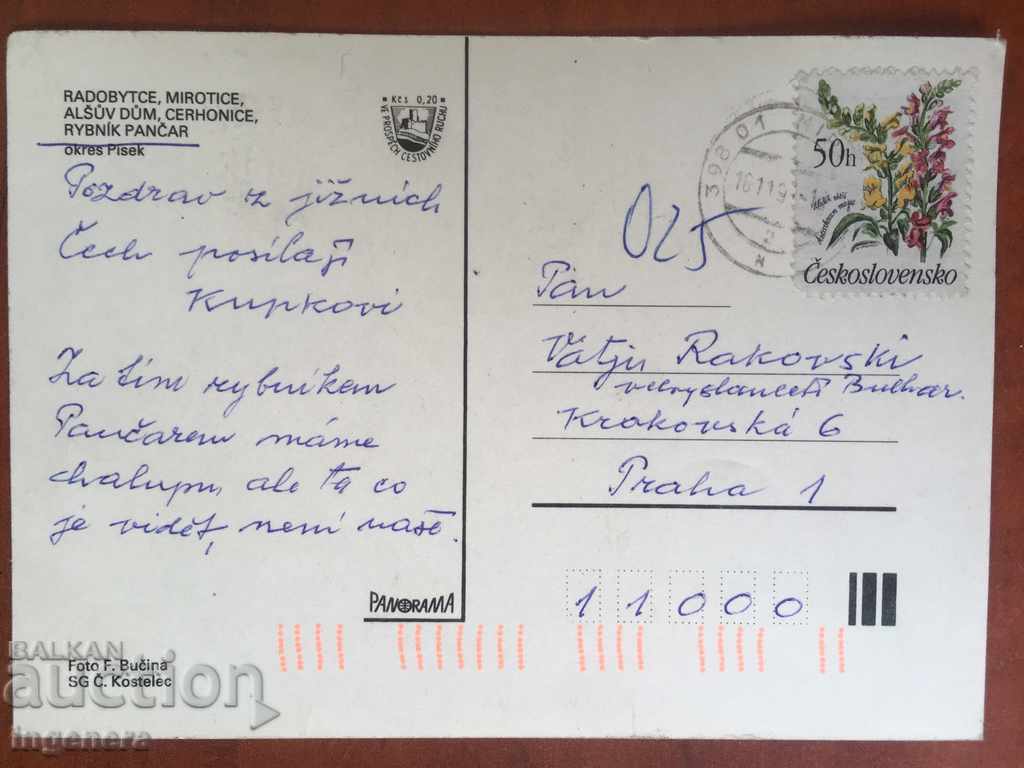 RADOBYTCE, MIROTICE,
ALŠŮV DŮM, CERHONICE,
RYBNÍK PANČAR
okres Písek
Kčs 0,20
VE PROSPĚCH CESTOVNÍHO RUCHU
Pozdrav z jižních
Čech posílají
Kupkovi
Za tím rybníkem
Pančarem máme
chalupu, ale ta co
je vidět, není naše.
PANORAMA
Foto F. Bučina
SG Č. Kostelec
398 01
16.11.9
50h
Československo
025
Pan
Vátju Rakovski
velvyslanectí Bulhar.
Krakovská 6
Praha 1
11000
BALKAN
auction
ingenera